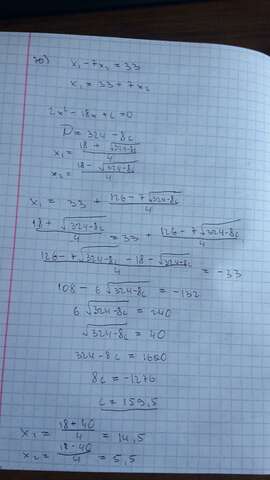 70) x₁ - 7x₂ = 33
x₁ = 33 + 7x₂
2x² - 18x + c = 0
D = 324 - 8c
x₁ = (18 + √(324-8c))/4
x₂ = (18 - √(324-8c))/4
x₁ = 33 + (126 - 7√(324-8c))/4
(18 + √(324-8c))/4 = 33 + (126 - 7√(324-8c))/4
(126 - 7√(324-8c) - 18 - √(324-8c))/4 = -33
108 - 6√(324-8c) = -132
6√(324-8c) = 240
√(324-8c) = 40
324 - 8c = 1600
8c = -1276
c = 159,5
x₁ = (18+40)/4 = 14,5
x₂ = (18-40)/4 = 5,5